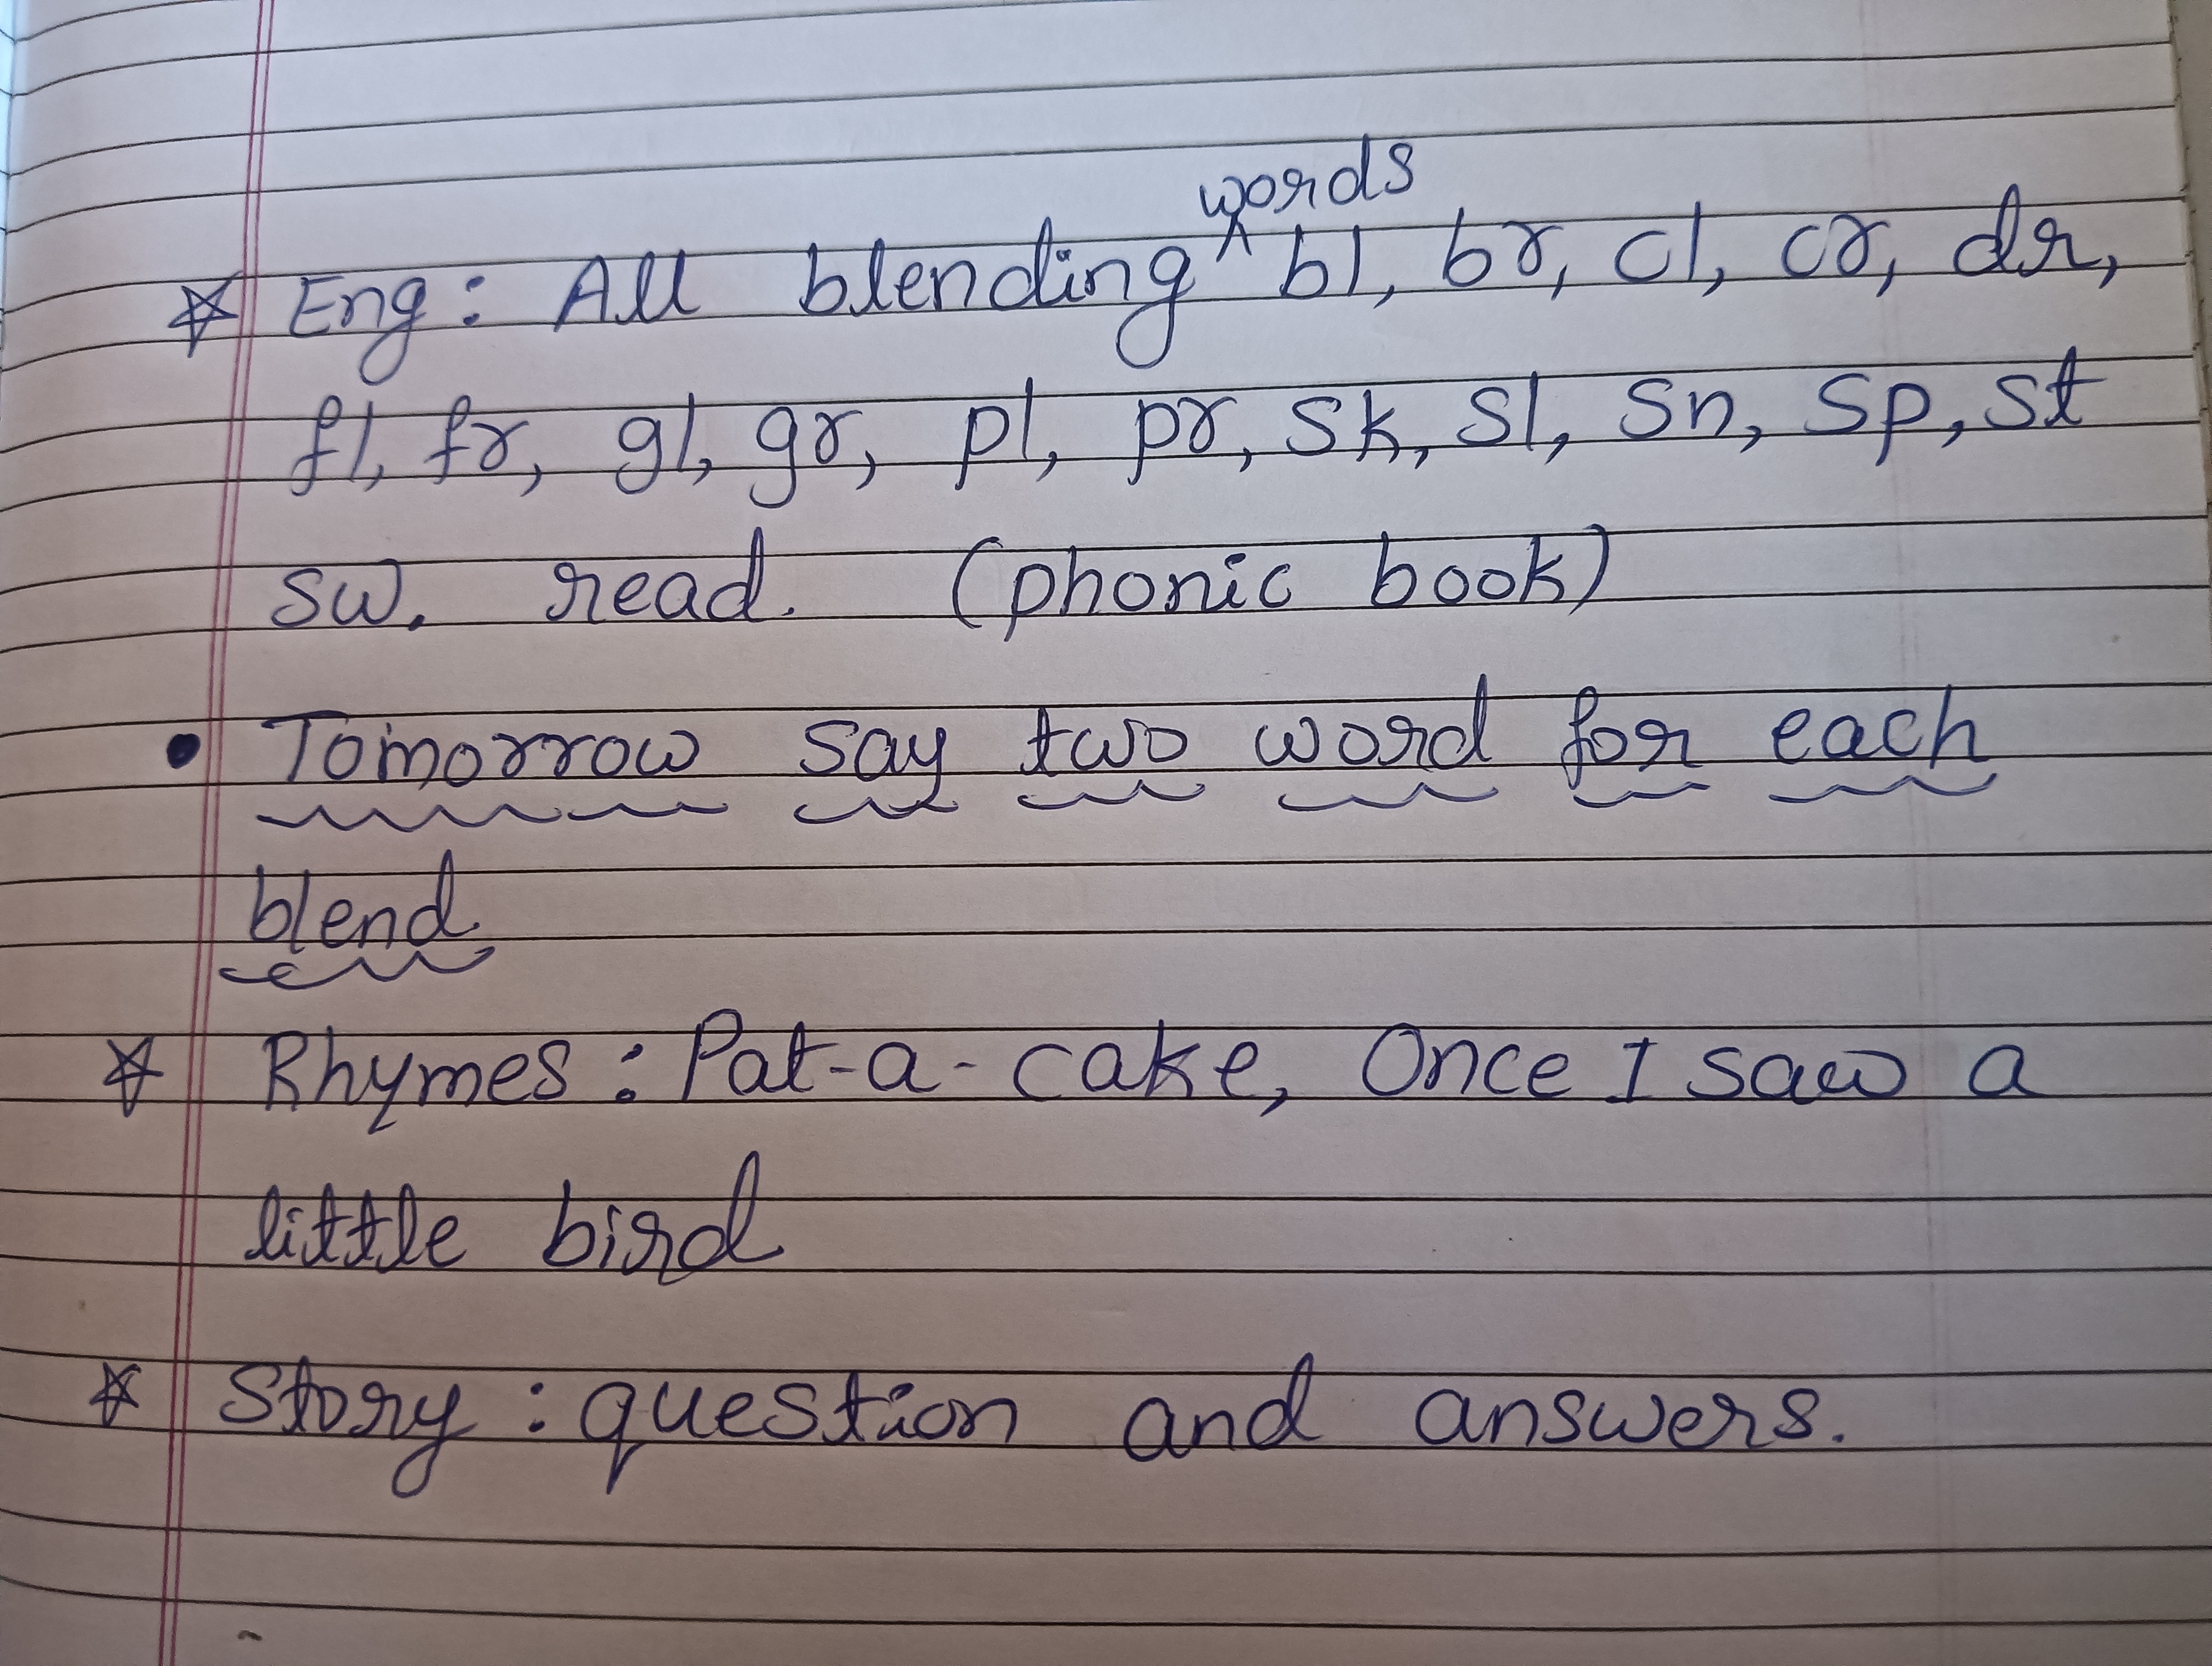 ☆ Eng: All blending ^words bl, br, cl, cr, dr,
fl, fr, gl, gr, pl, pr, sk, sl, sn, sp, st
sw. read. (phonic book)
• Tomorrow say two word for each
blend.
☆ Rhymes: Pat-a-cake, Once I saw a
little bird
☆ Story: question and answers.